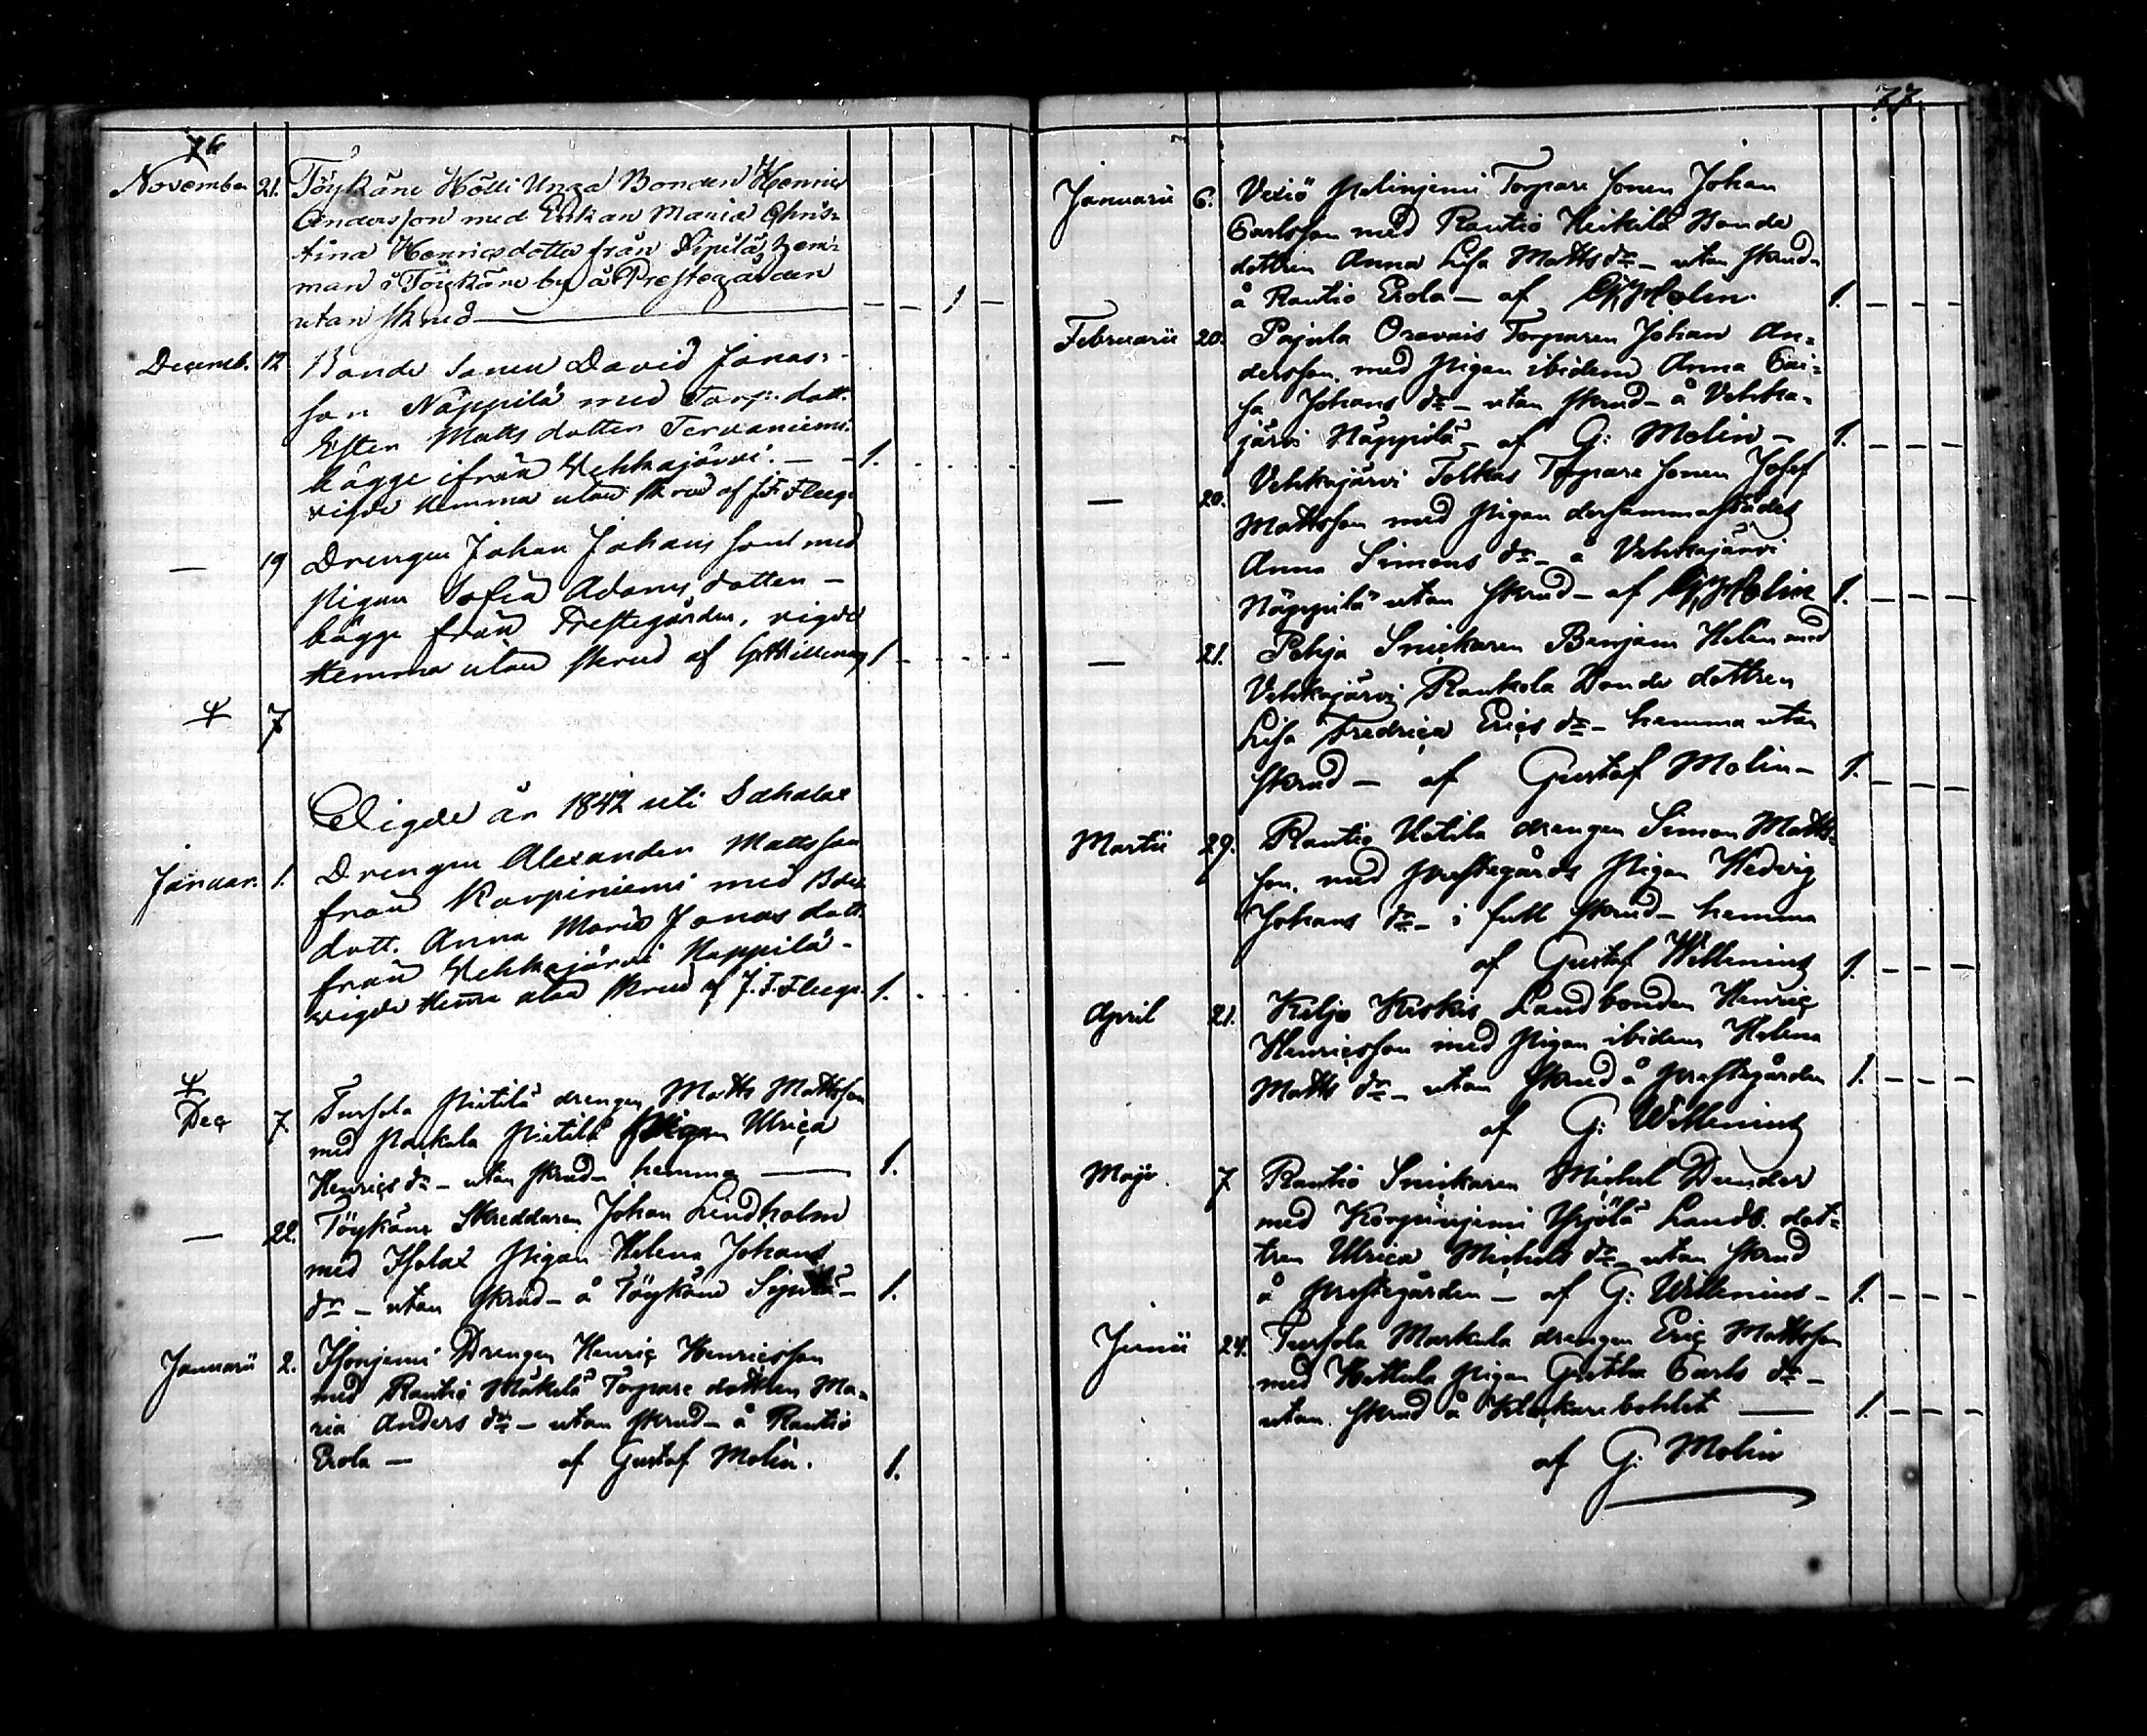 76
November 21. Töykäne Hölli Unga Bonden Henric
Andersson med Enkan Maria Chris-
tina Henricsdotter från Sipilä hem-
man i Töykäne by å Prestegården
utan skrud — — — 1 —
Decemb. 12 Bonde Sonen David Jonas-
son Näppilä med Torp. dott.
Ester Matts dotter Tervaniemi
bägge ifrån Wehkajärvi. — — 1.
vigde hemma utan skrud af J. F. Fleege
— 19 Drengen Johan Johans son med
Pigan Sofia Adams dotter —
bägge från Prestegården, vigde
Hemma utan skrud af G Willenius 1
7
Vigde år 1842 uti Sahalax
Januar. 1. Drengen Alexander Mattsson
från Karpiniemi med Bde
dott. Anna Maria Jonas dott.
från Wehkajärvi Nappilä -
vigde Hema utan skrud af J. F. Fleege. 1.
Dec 7. Tursola Pietilä drengen Matts Mattsson
med Pietilä Pigan Ulrica
Henrics dr — utan skrud hemma — 1.
— 22. Töykäne Skreddaren Johan Lindholm
med Isolax Pigan Helena Johans
dr — utan skrud — å Töykäne Sipilä — 1.
Januarii 2. Isonjemi Drengen Henric Henricsson
med Rautio Mäkelä Torpare dottren Ma-
ria Anders dr — utan skrud — å Rautio
Erola — af Gustaf Molin. 1.
77
Januarii 6. Torpare sonen Johan
Carlsson med Rautio Heikilä Bonde
dottren Anna Lisa Matts dr — utan skrud
å Rautio Erola — af G Molin. 1. — — —
Februarii 20. Pajula Oravais Torparen Johan An-
dersson, med Pigan ibidem Anna Cai-
sa Johans dr — utan skrud — å Vehka-
järvi Näppilä — af G: Molin — 1. — — —
— 20. Vehkajärvi Tolkas Torpare sonen Josef
Mattsson med Pigan dersammastädes
Anna Simons dr — å Vehkajärvi
Näppilä utan skrud — af G Molin 1. — — —
— 21. Pohja Snickaren Benjam Helen med
Vehkajärvi Raukola Bonde dottren
Lisa Fredrica Erics dr — hemma utan
skrud — af Gustaf Molin — 1. — — —
Martii 29. Rautio drengen Simon Matts-
son, med prestegårds Pigan Hedvig
Johans dr — i full skrud — hemma
af Gustaf Willenius 1. — — —
April 21. Keljo Kiskis Landbonden Henric
Henricsson med Pigan ibidem Helena
Matts dr — utan skrud å prestegården 1. — — —
af G: Willenius
Maji 7 Rautio Snickaren Michel Dunder
med Korpinjemi Yrjölä Landb. dot-
tren Ulrica Michels dr — utan skrud
å prestegården — af G: Willenius — 1. — — —
Junii 24. Tursola Markula drengen Eric Mattsson
med Hettula Pigan Gretha Carls dr —
utan skrud å Klockarebohlet — 1. — — —
af G: Molin